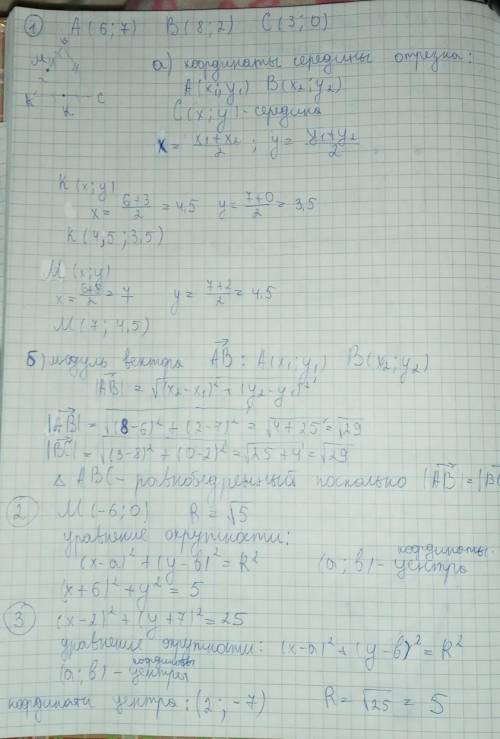 ① A(6;7) B(8;2) C(3;0)
M
K C
а) координаты середины отрезка:
A(x₁;y₁) B(x₂;y₂)
C(x;y) - середина
x = x₁+x₂/2 ; y = y₁+y₂/2
K(x;y)
x = 6+3/2 = 4,5 y = 7+0/2 = 3,5
K(4,5;3,5)
M(x;y)
x = 6+8/2 = 7 y = 7+2/2 = 4.5
M(7; 4,5)
б) модуль вектора AB: A(x₁;y₁) B(x₂;y₂)
|AB| = √(x₂-x₁)²+(y₂-y₁)²
|AB| = √(8-6)²+(2-7)² = √4+25 = √29
|BC| = √(3-8)²+(0-2)² = √25+4 = √29
△ ABC - равнобедренный поскольку |AB|=|BC
② M(-6;0) R = √5
уравнение окружности:
(x-a)²+(y-b)² = R² (a;b) - координаты центра
(x+6)²+y² = 5
③ (x-2)²+(y+7)² = 25
уравнение окружности: (x-a)²+(y-b)² = R²
(a;b) - координаты центры
координати центра: (2;-7) R = √25 = 5